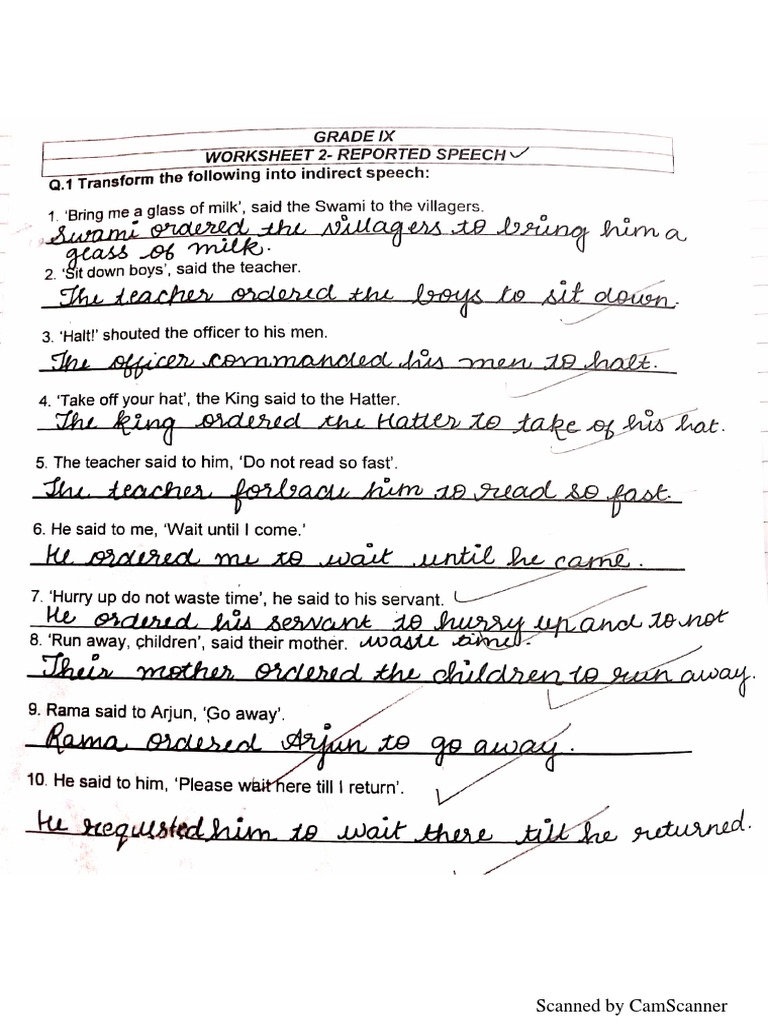 GRADE IX
WORKSHEET 2- REPORTED SPEECH
Q.1 Transform the following into indirect speech:
1. ‘Bring me a glass of milk’, said the Swami to the villagers.
Swami ordered the villagers to bring him a
glass of milk.
2. ‘Sit down boys’, said the teacher.
The teacher ordered the boys to sit down.
3. ‘Halt!’ shouted the officer to his men.
The officer commanded his men to halt.
4. ‘Take off your hat’, the King said to the Hatter.
The king ordered the Hatter to take of his hat.
5. The teacher said to him, ‘Do not read so fast’.
The teacher forbade him to read so fast.
6. He said to me, ‘Wait until I come.’
He ordered me to wait until he came.
7. ‘Hurry up do not waste time’, he said to his servant.
He ordered his servant to hurry up and to not
waste time.
8. ‘Run away, children’, said their mother.
Their mother ordered the children to run away.
9. Rama said to Arjun, ‘Go away’.
Rama ordered Arjun to go away.
10. He said to him, ‘Please wait here till I return’.
He requested him to wait there till he returned.
Scanned by CamScanner